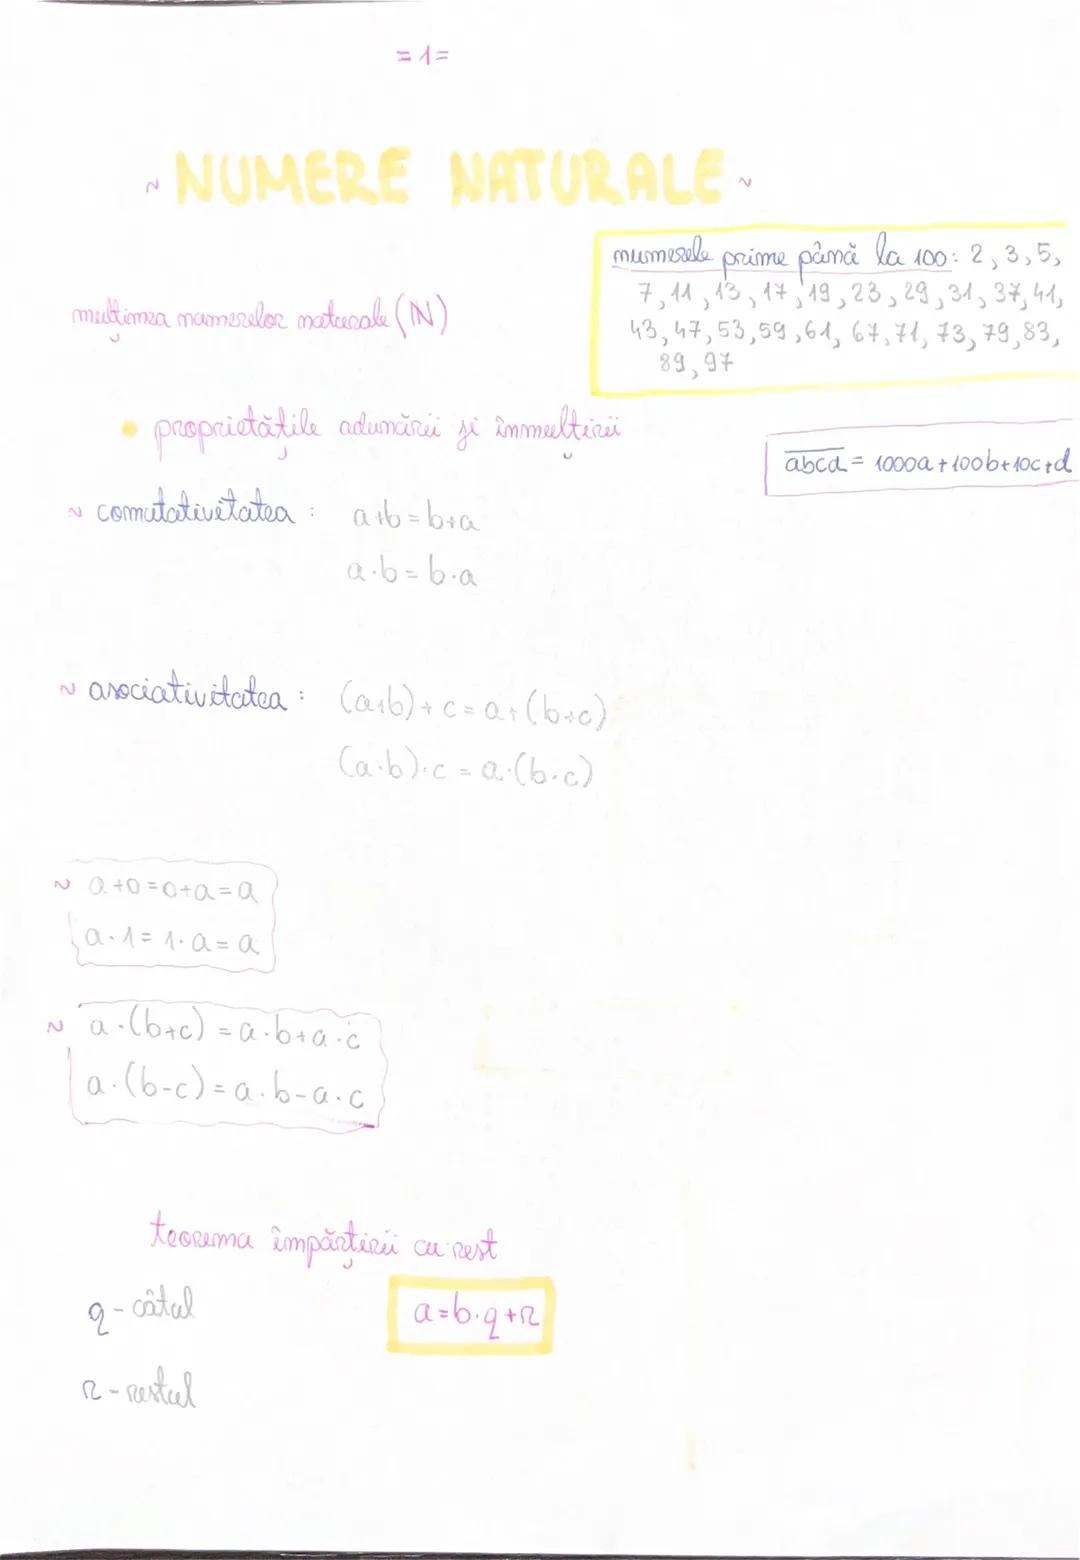 = 1 =
~ NUMERE NATURALE ~
numerele prime până la 100: 2, 3, 5,
7, 11, 13, 17, 19, 23, 29, 31, 37, 41,
43, 47, 53, 59, 61, 67, 71, 73, 79, 83,
89, 97
mulțimea numerelor naturale (ℕ)
• proprietățile adunării și înmulțirii
abcd̅ = 1000a + 100b + 10c + d
~ comutativitatea : a+b = b+a
a·b = b·a
~ asociativitatea : (a+b) + c = a + (b+c)
(a·b)·c = a·(b·c)
~ a+0 = 0+a = a
a·1 = 1·a = a
~ a·(b+c) = a·b+a·c
a·(b-c) = a·b-a·c
teorema împărțirii cu rest
q - câtul
a = b·q + r
r - restul